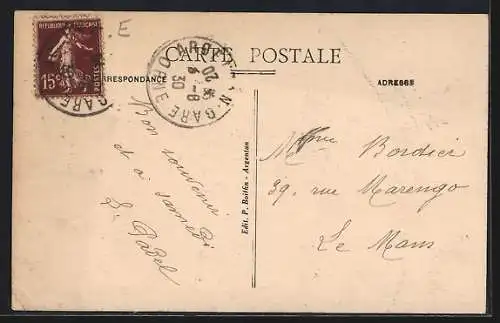 RÉPUBLIQUE FRANÇAISE
15c
POSTES
E
CARTE POSTALE
RRESPONDANCE
ADRESSE
GARE
ORNE
20
4 - 8
30
Bon souvenir
et à samedi
Edit. P. Boitlen - Argentan
Mme Bordier
39, rue Marengo
Le Mans